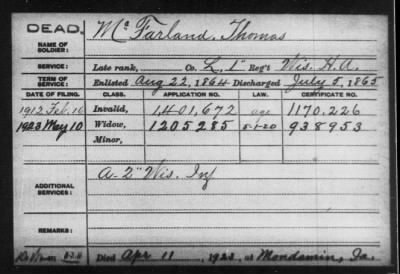 DEAD.
NAME OF SOLDIER: McFarland, Thomas
SERVICE: Late rank, Co. L, 1" Reg't Wis. H.A.
TERM OF SERVICE: Enlisted Aug 22, 1864 Discharged July 5, 1865
DATE OF FILING. CLASS. APPLICATION NO. LAW. CERTIFICATE NO.
1912 Feb. 16 Invalid, 1,401,672 age 1170.226
1923 May 10 Widow, 1205285 5-1-20 938953
Minor,
ADDITIONAL SERVICES: A-2" Wis. Inf
REMARKS:
Died Apr 11, 1923, at Mondamin, Ia.